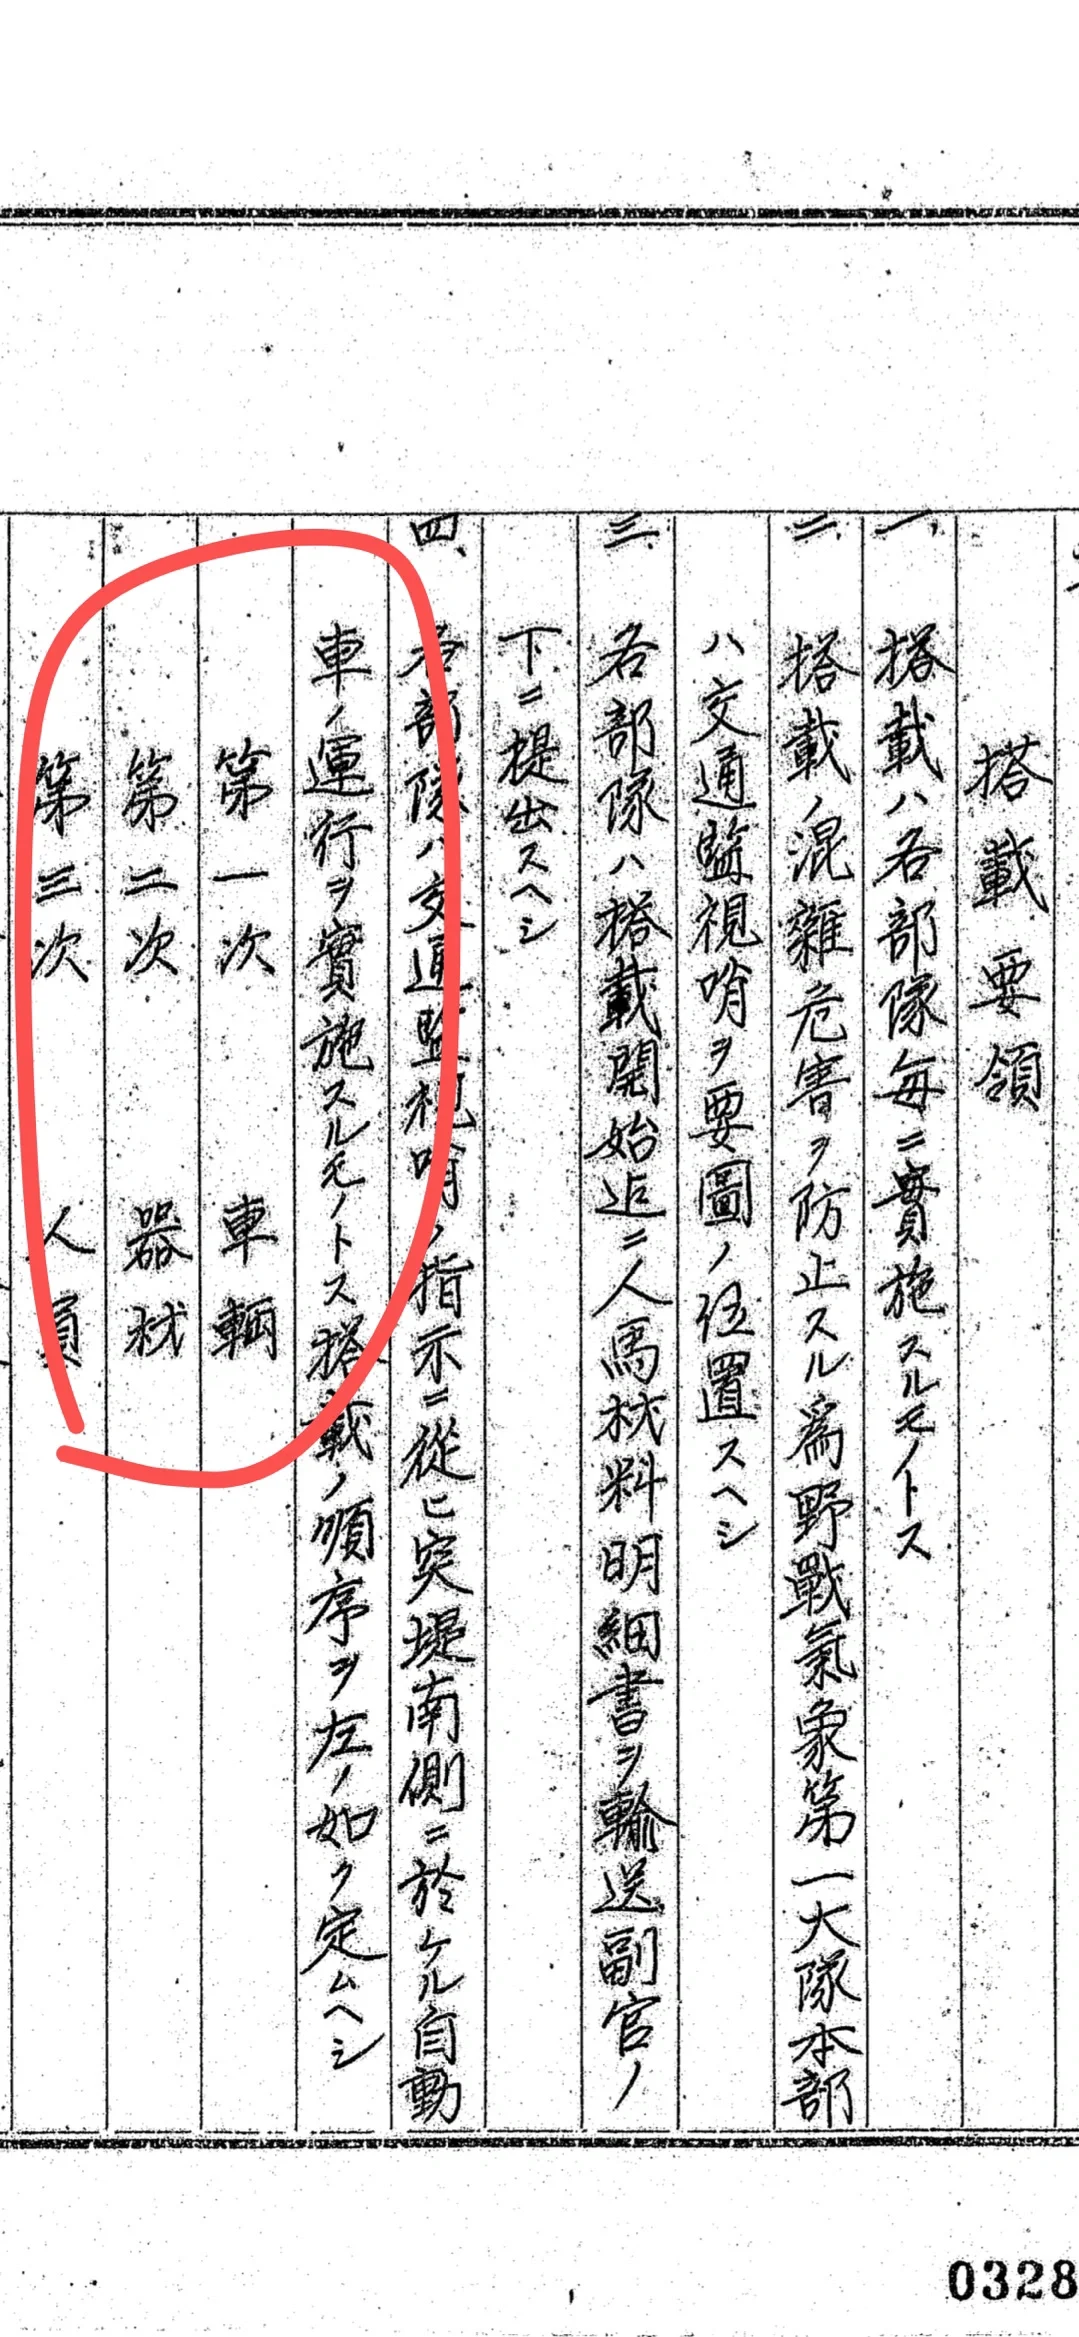 搭載要領
一、搭載ハ各部隊毎ニ實施スルモノトス
二、搭載ノ混雜危害ヲ防止スル爲野戰氣象第一大隊本部
ハ交通監視哨ヲ要圖ノ位置スヘシ
三、各部隊ハ搭載開始迠ニ人馬材料明細書ヲ輸送副官ノ
下ニ提出スヘシ
四、各部隊ハ交通監視哨ノ指示ニ從ヒ突堤南側ニ於ケル自動
車ノ運行ヲ實施スルモノトス搭載ノ順序ヲ左ノ如ク定ムヘシ
第一次 車輌
第二次 器材
第三次 人員
0328